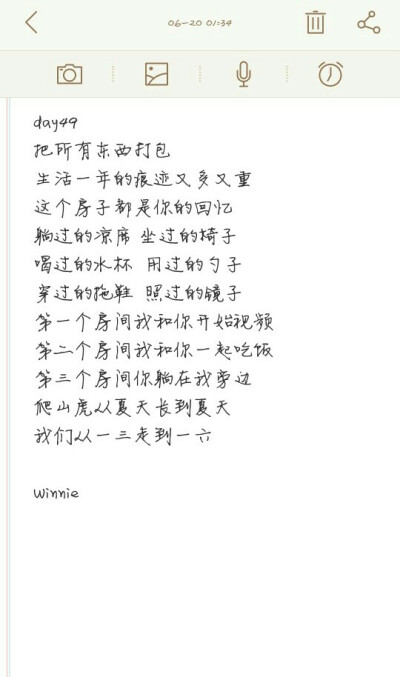 06-20 01:34
day49
把所有东西打包
生活一年的痕迹又多又重
这个房子都是你的回忆
躺过的凉席 坐过的椅子
喝过的水杯 用过的勺子
穿过的拖鞋 照过的镜子
第一个房间我和你开始视频
第二个房间我和你一起吃饭
第三个房间你躺在我旁边
爬山虎从夏天长到夏天
我们从一三走到一六
Winnie